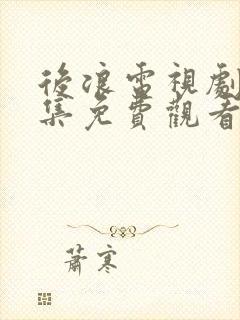 後浪電視劇
集免費觀看
蕭寒